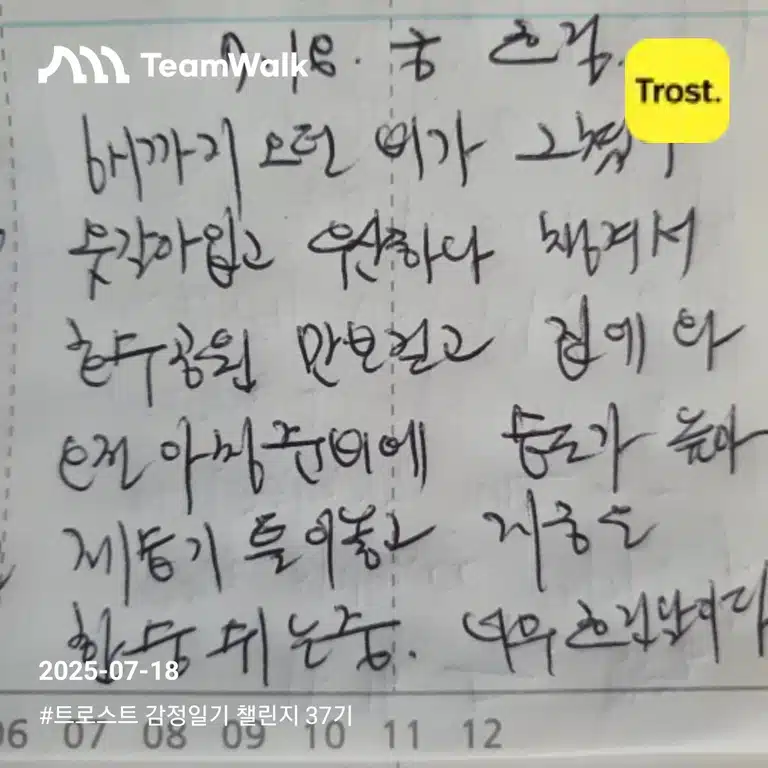 TeamWalk
7. 18. 금 흐림.
Trost.
새까지 오던 비가 그쳤
옷갈아입고 우산하나 챙겨서
호수공원 만보걷고 집에 와
오전 아침준비에 습도가 높아
제습기 틀어놓고 지금은
한숨 쉬는중. 너무 흐린날이다
2025-07-18
#트로스트 감정일기 챌린지 37기
06 07 08 09 10 11 12